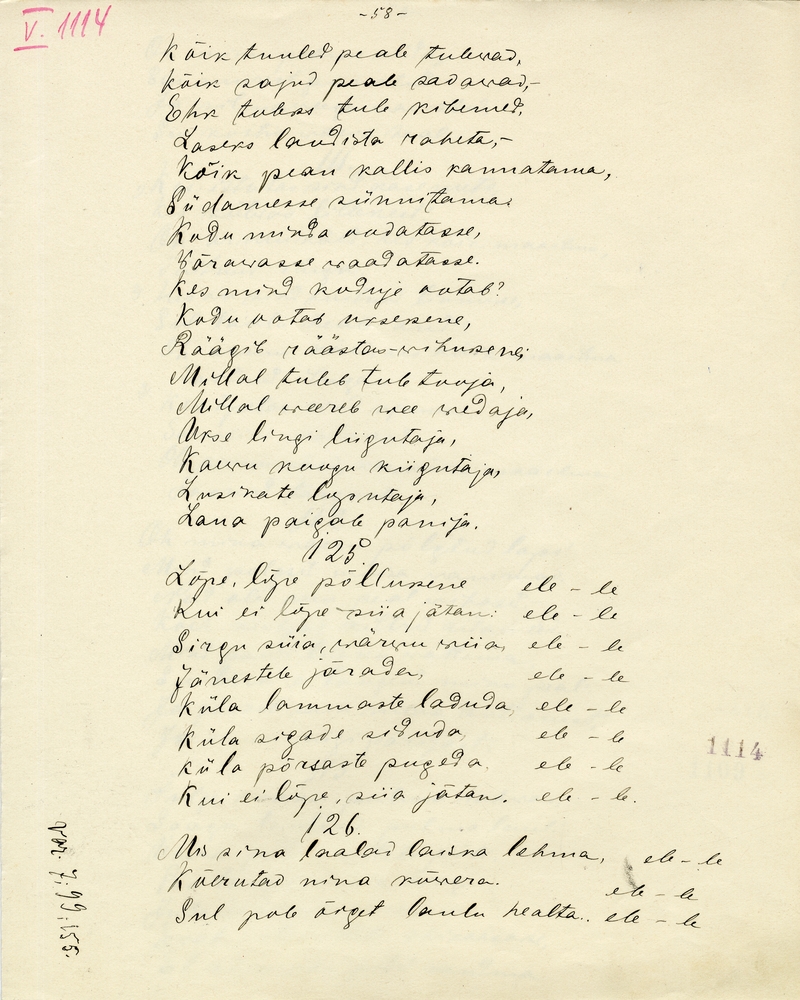 V. 1114
-58-
Kõik tuuled peale tulewad,
Kõik sajud peale sadawad,-
Ehk tuleks tule kibemed,
Laseks laudista raheta,-
Kõik pean kallis kannatama,
Südamesse sünnitama.
Kodu minda oodatasse,
Wärawasse waadatasse.
Kes mind koduje ootab?
Kodu ootab uksekene,
Räägib räästas-wihukene;
Millal tuleb tule tooja,
Millal weereb wee wedaja,
Ukse lingi liigutaja,
Kaewu koogu kiigutaja,
Lusikate loputaja,
Laua paigale panija.
125.
Lõpe, lõpe põllukene ele - le
Kui ei lõpe siia jätan: ele - le
Sirgu süia, wärwu wiia, ele - le
Jänestele järada, ele - le
Küla lammaste laduda, ele - le
Küla sigade siduda, ele - le
Küla põrsaste pugeda. ele - le
Kui ei lõpe, siia jätan. ele - le.
126.
Mis sina laalad laiska lehma, ele - le
Kõerutad nina kõwera. ele - le
Sul pole õiget laulu healta.. ele - le
1114